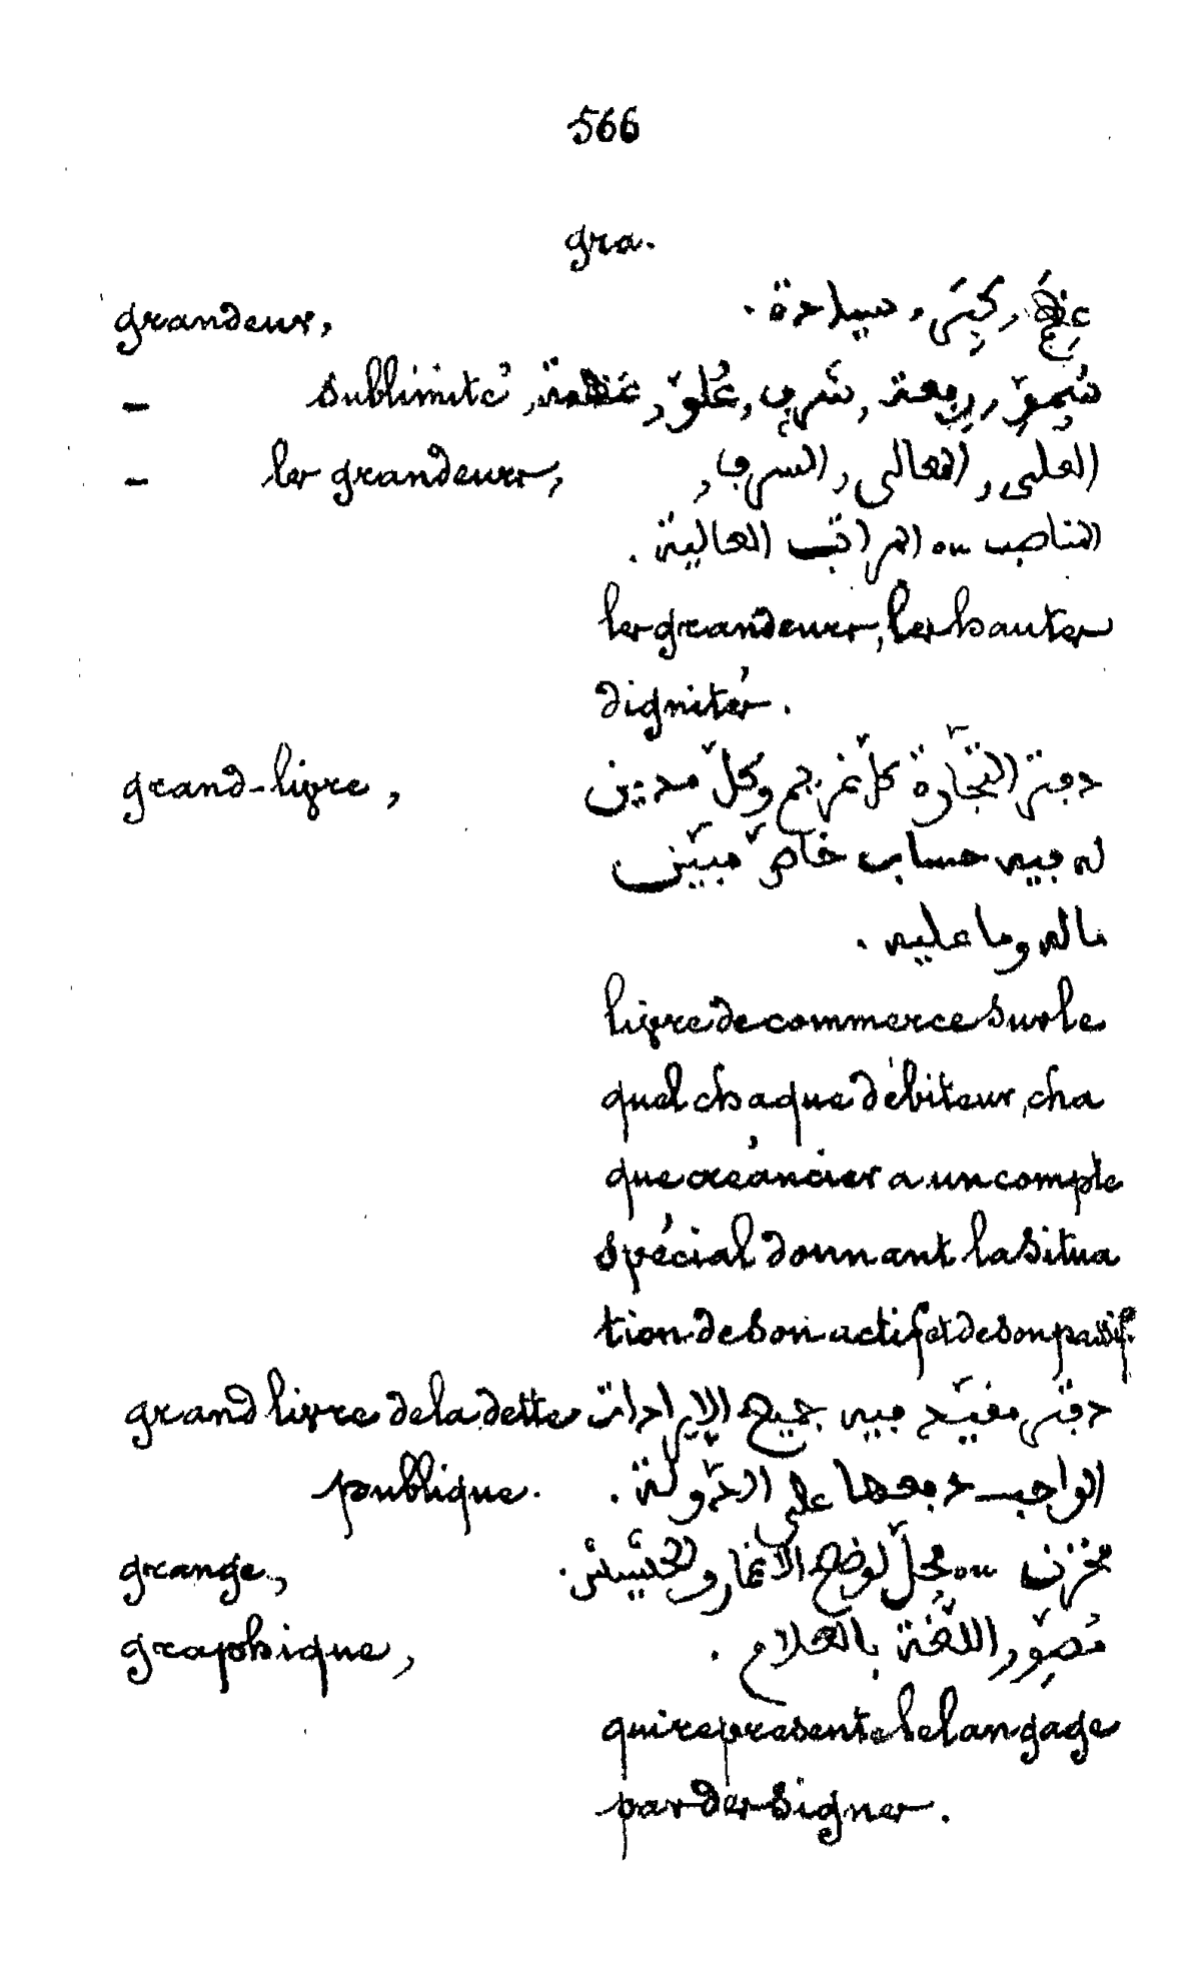 566
gra.
grandeur, عِظَم, كِبَر, سيادة.
– sublimité, سُمُوّ, رفعة, شرف, عُلُوّ, عَظَمة,
– les grandeurs, العلى, المعالى, الشرف,
المناصب ou المراتب العالية.
les grandeurs, les hautes
dignités.
grand-livre, دفتر التجّارة كلّ غريم وكلّ مدين
له فيه حساب خاصّ مبيّن
ماله وما عليه.
livre de commerce sur le
quel chaque débiteur, cha
que créancier a un compte
spécial donnant la situa
tion de son actif et de son passif.
grand livre de la dette دفتر مقيّد فيه جميع الإيرادات
publique. الواجب دفعها على الدّولة.
grange, مخزن ou محلّ لوضع الاثمار والحشيش.
graphique, مُصَوِّر اللّغة بالعلام.
qui représente le langage
par des signes.